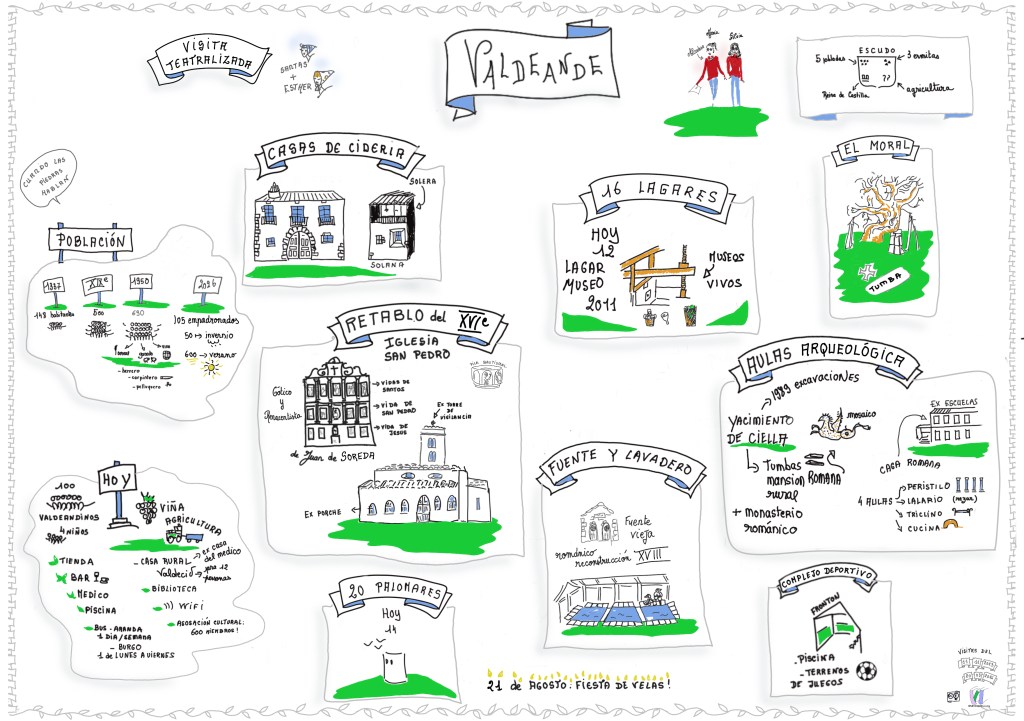 VISITA
TEATRALIZADA
SANTAS
+
ESTHER
VALDEANDE
María
Silvia
ESCUDO
5 poblados
3 ermitas
Reino de Castilla
agricultura
CUANDO LAS
PIEDRAS
HABLAN
CASAS DE CIDERIA
SOLERA
SOLANA
16 LAGARES
HOY
12
LAGAR
MUSEO
2011
MUSEOS
VIVOS
EL MORAL
TUMBA
POBLACIÓN
XIXe
1950
148 habitantes
500
105 empadronados
50 → invernio
600 → verano
- herrero
- carpintero
- peluquero
RETABLO del XVIe
IGLESIA
SAN PEDRO
Gótico
y
Renacentista
VIDAS DE
SANTOS
VIDA DE
SAN PEDRO
VIDA DE
JESUS
de Juan de SOREDA
EX TORRE
DE
VIGILANCIA
EX PORCHE
AULAS ARQUEOLÓGICA
1989 excavaciones
YACIMIENTO
DE CIELLA
mosaico
Tumbas
mansion ROMANA
rural
+ monasterio
románico
EX ESCUELAS
CASA ROMANA
4 AULAS
PERISTILO
LALARIO
TRICLINO
CUCINA
HOY
100
VALDEANDINOS
4 NIÑOS
VIÑA
AGRICULTURA
TIENDA
BAR
MEDICO
PISCINA
BUS - ARANDA
1 DIA/SEMANA
- BURGO
1 de LUNES A VIERNES
- CASA RURAL
Valdecid
EX CASA
del MEDICO
para 12
personas
BIBLIOTECA
WIFI
ASOSACIÓN CULTURAL:
600 MIEMBROS!
FUENTE Y LAVADERO
Fuente
vieja
románico
reconstrucción XVIII
20 PALOMARES
Hoy
14
COMPLEJO DEPORTIVO
FRONTON
- PISCINA
- TERRENOS
DE JUEGOS
21 de AGOSTO: FIESTA DE VELAS!
VISITES DEL